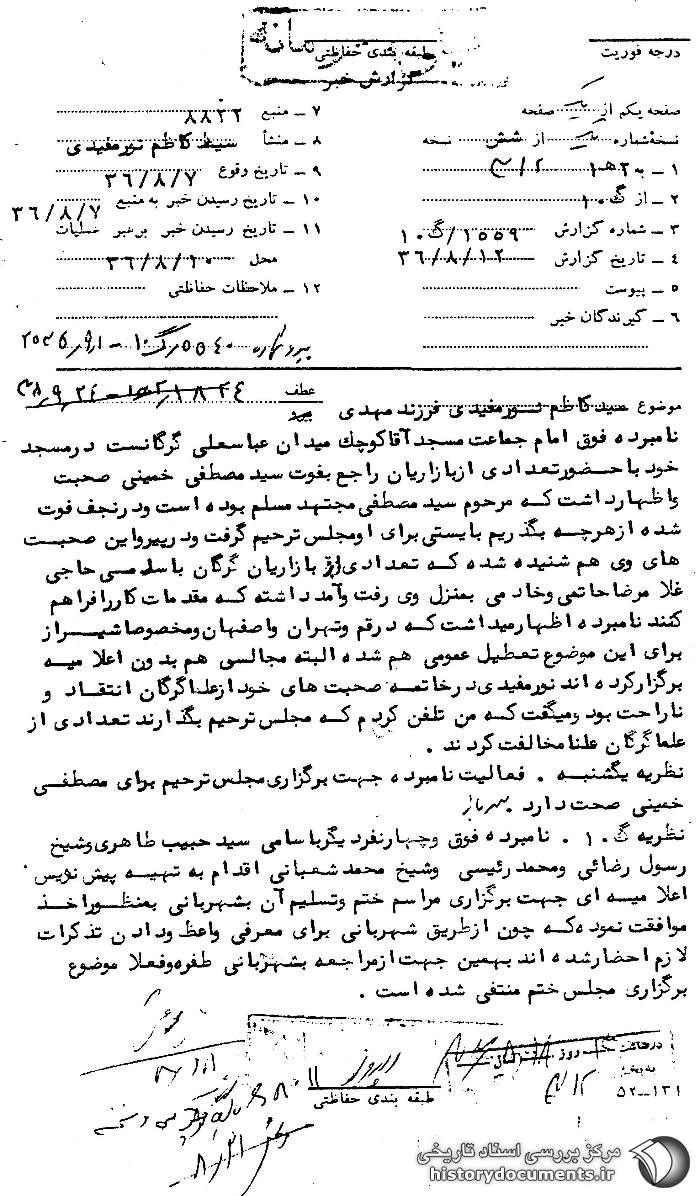 درجه فوریت
طبقه بندی حفاظتی
گزارش خبر
صفحه یکم از یک صفحه
نسخه شماره یک از شش نسخه
۱ ـ به ۳۱۲
۲ ـ از ک ۱۰
۳ ـ شماره گزارش ۱۵۵۹/ک۱۰
۴ ـ تاریخ گزارش ۳۶/۸/۱۲
۵ ـ پیوست
۶ ـ گیرندگان خبر
۷ ـ منبع ۸۸۳۲
۸ ـ منشأ سید کاظم نورمفیدی
۹ ـ تاریخ وقوع ۳۶/۸/۷
۱۰ ـ تاریخ رسیدن خبر به منبع ۳۶/۸/۷
۱۱ ـ تاریخ رسیدن خبر برهبر عملیات
محل ۳۶/۸/۱۰
۱۲ ـ ملاحظات حفاظتی
موضوع سید کاظم نورمفیدی فرزند مهدی
عطف
نامبرده فوق امام جماعت مسجد آقاکوچك میدان عباسعلی گرگانست درمسجد
خود با حضور تعدادی ازبازاریان راجع بفوت سید مصطفی خمینی صحبت
واظهارداشت که مرحوم سید مصطفی مجتهد مسلم بوده است ودرنجف فوت
شده ازهرچه بگذریم بایستی برای اومجلس ترحیم گرفت ودرپیرواین صحبت
های وی هم شنیده شده که تعدادی از بازاریان گرگان باسامی حاجی
غلامرضاحاتمی وخادمی بمنزل وی رفت وآمدداشته که مقدمات کاررافراهم
کنند نامبرده اظهارمیداشت که درقم وتهران واصفهان ومخصوصاشیراز
برای این موضوع تعطیل عمومی هم شده البته مجالسی هم بدون اعلامیه
برگزارکرده اند نورمفیدی درخاتمه صحبت های خودازعلماگرگان انتقاد و
ناراحت بود ومیگفت که من تلفن کردم که مجلس ترحیم بگذارند تعدادی از
علماگرگان علنا مخالفت کردند .
نظریه یکشنبه . فعالیت نامبرده جهت برگزاری مجلس ترحیم برای مصطفی
خمینی صحت دارد
نظریه ک ۱۰ . نامبرده فوق وچهارنفردیگرباسامی سید حبیب طاهری وشیخ
رسول رضائی ومحمد رئیسی وشیخ محمد شعبانی اقدام به تهیه پیش نویس
اعلامیه ای جهت برگزاری مراسم ختم وتسلیم آن بشهربانی بمنظوراخذ
موافقت نموده که چون ازطریق شهربانی برای معرفی واعظ ودادن تذکرات
لازم احضارشده اند بهمین جهت ازمراجعه بشهربانی طفره وفعلا موضوع
برگزاری مجلس ختم منتفی شده است .
طبقه بندی حفاظتی
۱۳۱ــ۵۲
مرکز بررسی اسناد تاریخی
historydocuments.ir